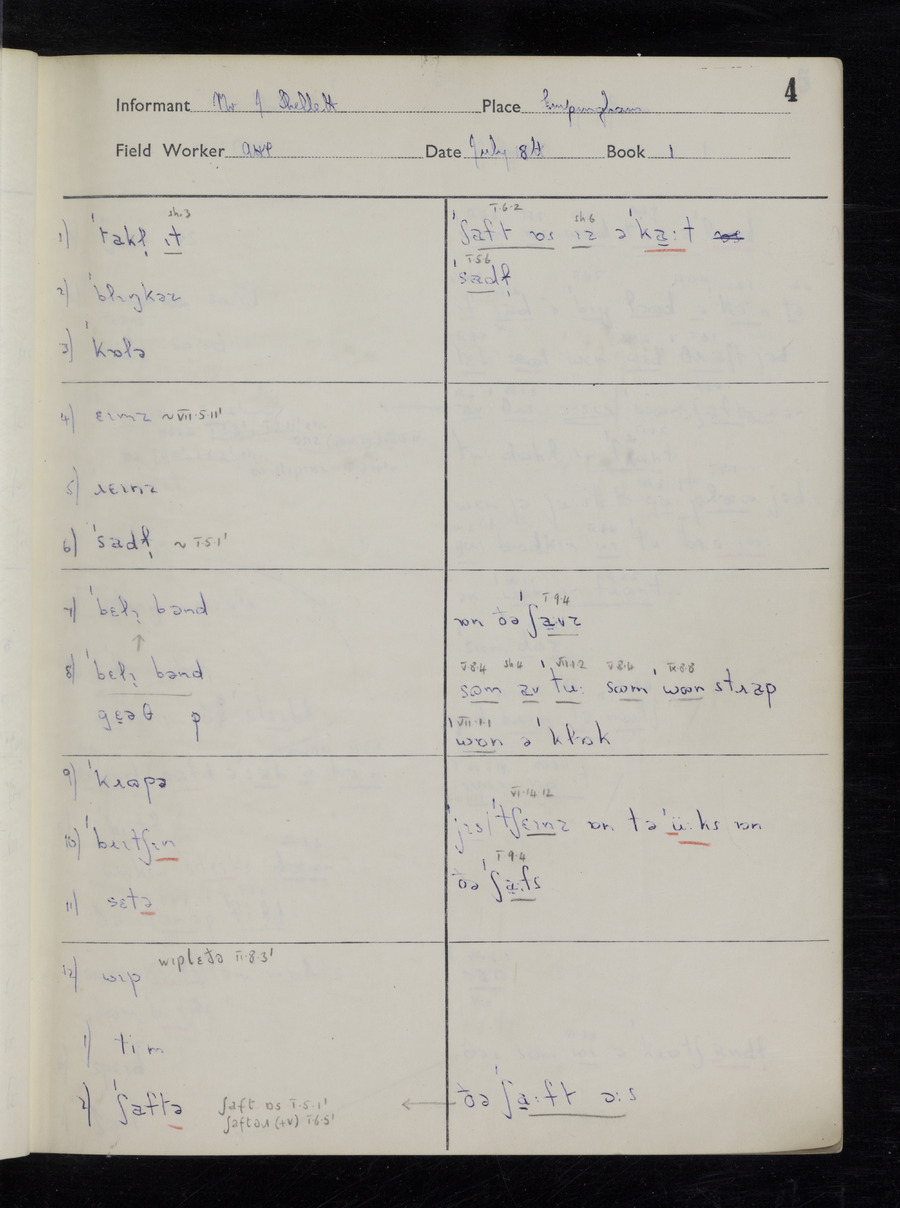 4
Informant Mr J Shellett Place Empingham
Field Worker Date July 8th Book 1
sh.3
1) ˈtakɫ̩ ɪt
2) ˈblɪŋkəz
3) ˈkɒlə
4) ɛɪmz ~ VII.5.11'
5) ɹɛɪnz
6) ˈsadɫ̩ ~ I.5.1'
7) ˈbɛlɪ band
↑
8) ˈbɛlɪ band
gɛəθ p
9) ˈkɹʊpə
10) ˈbɹɪtʃɪn
11) sɛtə
12) wɪp wɪplɛðə II.8.3'
1) tim
2) ˈʃaftə ʃaft ɒs I.5.1'
ʃaftəɹ (+v) I.6.5'
I.6.2 sh.6
ˈʃaft ɒs ɪz ə ˈka:t
I.5.6
ˈsadɫ̩
I.9.4
ɒn ðə ˈʃavz
V.8.4 sh.4 VII.1.2 V.8.4 IX.8.8
sʊm av ˈtu: sʊm ˈwʊn stɹap
VII.1.1
ˈwʊn ə ˈklɒk
VI.14.12
ˈjɪs ˈtʃɛɪnz ɒn tə ˈü:ks ɒn
I.9.4
ðə ˈʃa:fs
← ðə ˈʃa:ft ɔ:s